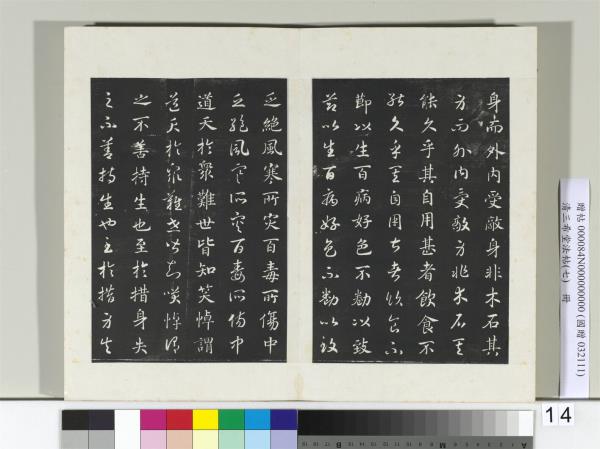 身而外內受敵身非木石其
身而外內受敵身非木石其
能久乎其自用甚者飲食不
能久乎其自用甚者飲食不
節以生百病好色不勌以致
節以生百病好色不勌以致
乏絕風寒所災百毒所傷中
乏絕風寒所災百毒所傷中
道夭於衆難世皆知笑悼謂
道夭於衆難世皆知笑悼謂
之不善持生也至於措身失
之不善持生也至於措身失
贈帖 000084N000000000 (國贈 032111)
清三希堂法帖(七) 冊
14